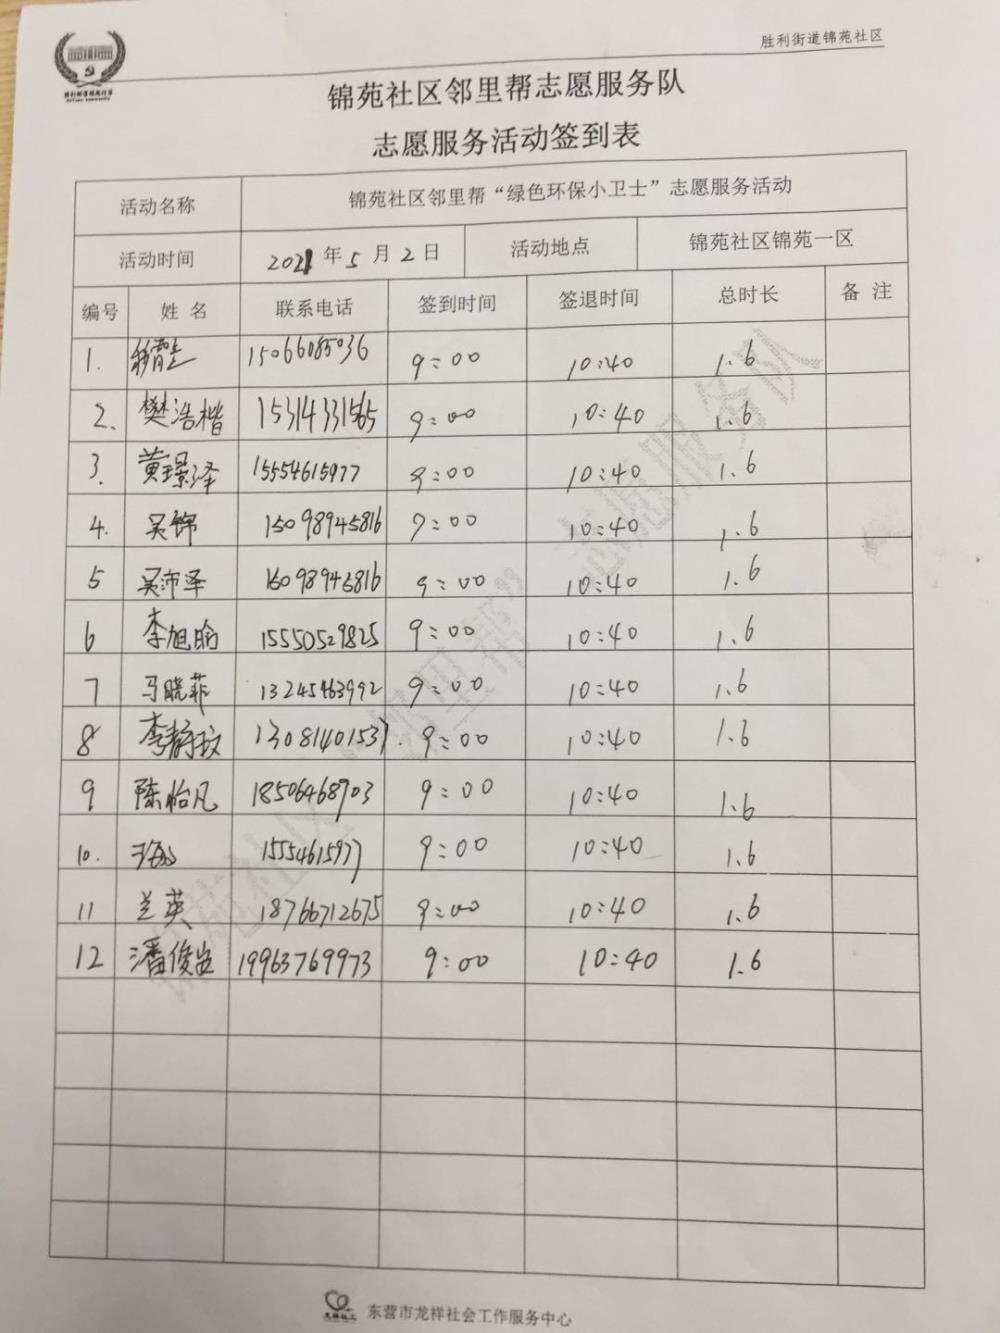 胜利街道锦苑社区
锦苑社区邻里帮志愿服务队
志愿服务活动签到表
活动名称 锦苑社区邻里帮“绿色环保小卫士”志愿服务活动
活动时间 2021年5月2日 活动地点 锦苑社区锦苑一区
编号 姓 名 联系电话 签到时间 签退时间 总时长 备 注
1. 15066085036 9:00 10:40 1.6
2. 樊浩楷 15314331565 9:00 10:40 1.6
3. 黄璟泽 15554615977 9:00 10:40 1.6
4. 吴锦 15098945816 9:00 10:40 1.6
5 吴沛泽 15098945816 9:00 10:40 1.6
6 李旭晗 15550529825 9:00 10:40 1.6
7 马晓菲 13245463992 9:00 10:40 1.6
8 李静玟 13081401537. 9:00 10:40 1.6
9 陈怡凡 18506468903 9:00 10:40 1.6
10. 15554615977 9:00 10:40 1.6
11 兰英 18766712675 9:00 10:40 1.6
12 潘俊 19963769973 9:00 10:40 1.6
锦苑社区“邻里帮”志愿服务队
东营市龙祥社会工作服务中心